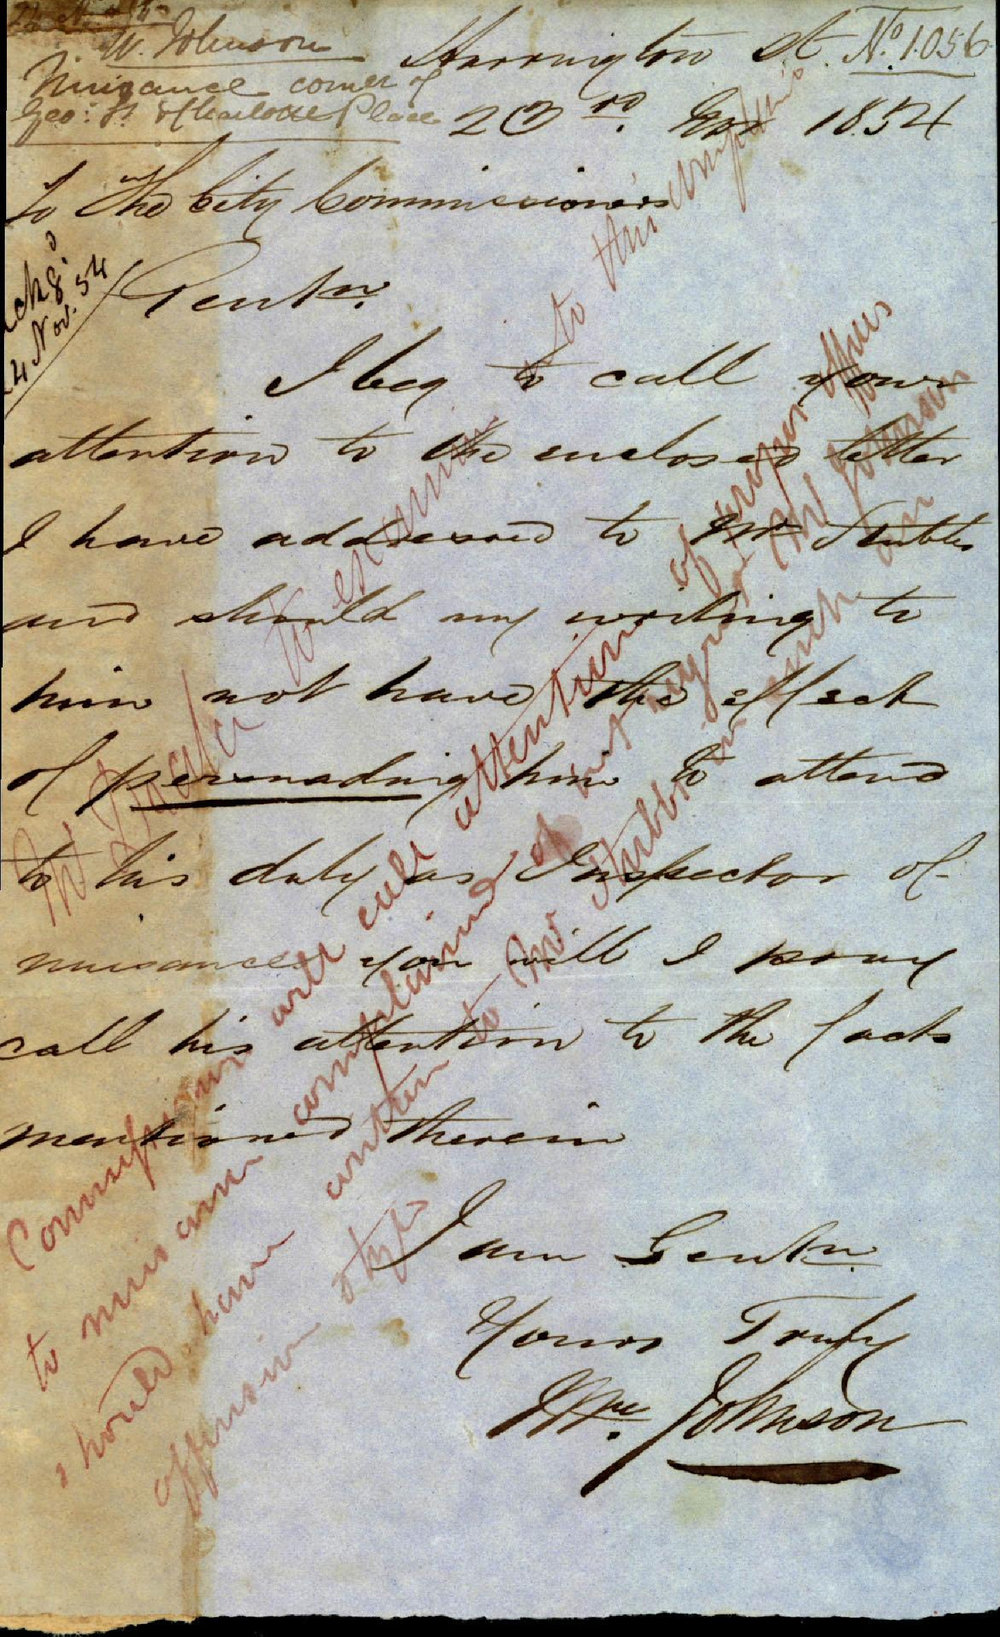 W. Johnson
Nuisance corner of
Geo: St & Charlotte Place
Harrington St. No. 1056
23rd. 1854
To The City Commissioners
Ackgd.
24 Nov. 54
Gentn.
I beg to call your
attention to the enclosed letter
I have addressed to Mr Stubbs
and should my writing to
him not have the effect
of persuading him to attend
to his duty as Inspector of
nuisances you will I pray
call his attention to the facts
mentioned therein
I am Gentn.
Yours Truly
Wm. Johnson
Mr to examine to this complaint
Commissioners will call attention of proper officers
to nuisance complained of but regret Mr Johnson
should have written to Mr Stubbs in such an
offensive style